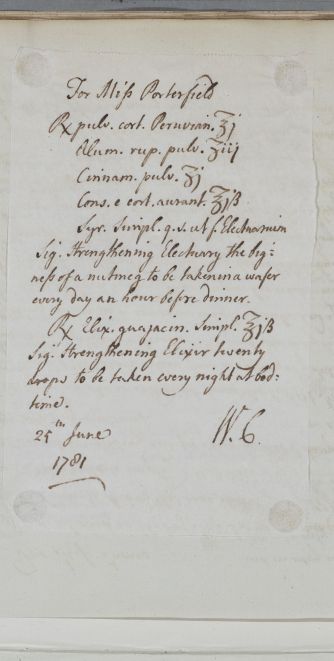 For Miſs Porterfield
℞ pulv. cort. Peruvian. ʒj
Alum. rup. pulv. ʒiij
Cinnam. pulv. ʒj
Cons. e cort. aurant. ℥jß
Syr. Simpl. q. s. ut f. Electuarium
Sig. Strengthening Electuary the big=
neſs of a nutmeg to be taken in a wafer
every day an hour before dinner.
℞ Elix. guajacin. Simpl. ℥jß
Sig. Strengthening Elixir twenty
drops to be taken every night at bed=
time.
25th June
1781
W. C.